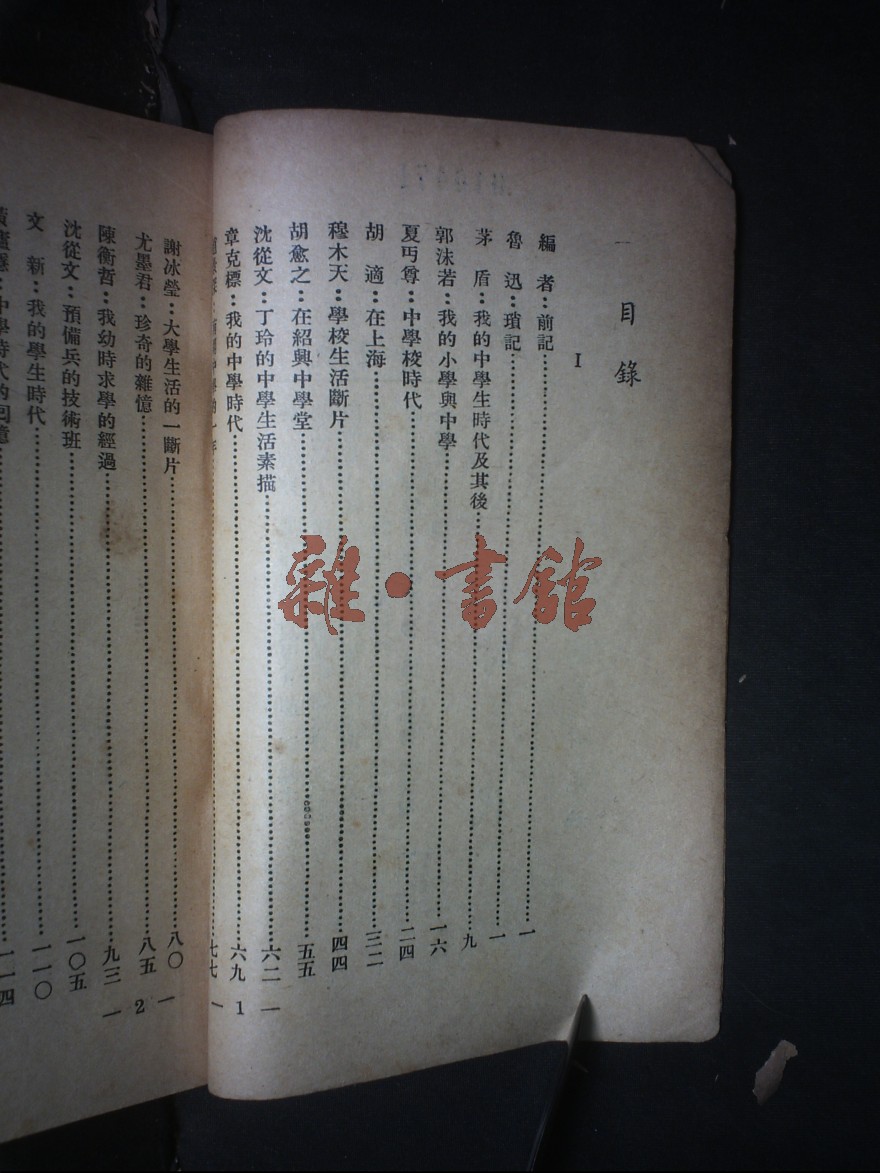 目錄
I
編者：前記……一
魯迅：瑣記……一
茅盾：我的中學生時代及其後……九
郭沫若：我的小學與中學……一六
夏丏尊：中學校時代……二四
胡適：在上海……三二
穆木天：學校生活斷片……四四
胡愈之：在紹興中學堂……五五
沈從文：丁玲的中學生活素描……六二
章克標：我的中學時代……六九
中學的一年……七七
— 1 —
謝冰瑩：大學生活的一斷片……八〇
尤墨君：珍奇的雜憶……八五
陳衡哲：我幼時求學的經過……九三
沈從文：預備兵的技術班……一〇五
文新：我的學生時代……一一〇
中學時代的回憶……一一四
— 2 —
雜·書館